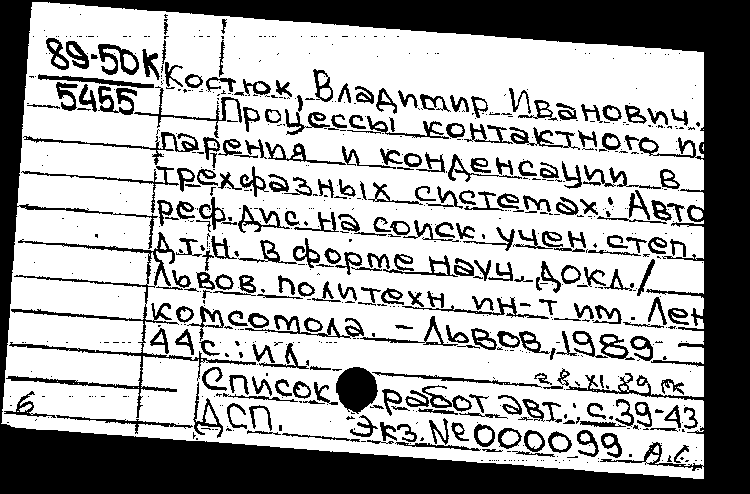 89-50К
5455
Костюк, Владимир Иванович.
Процессы контактного по
парения и конденсации в
трехфазных системах: Авто
реф. дис. на соиск. учен. степ.
д.т.н. в форме науч. докл./
Львов. политехн. ин-т им. Лен
комсомола. - Львов, 1989. -
44 с.: ил.
28.XI.89
Список работ авт.: с. 39-43.
ДСП. Экз. № 000099. А.С.
6